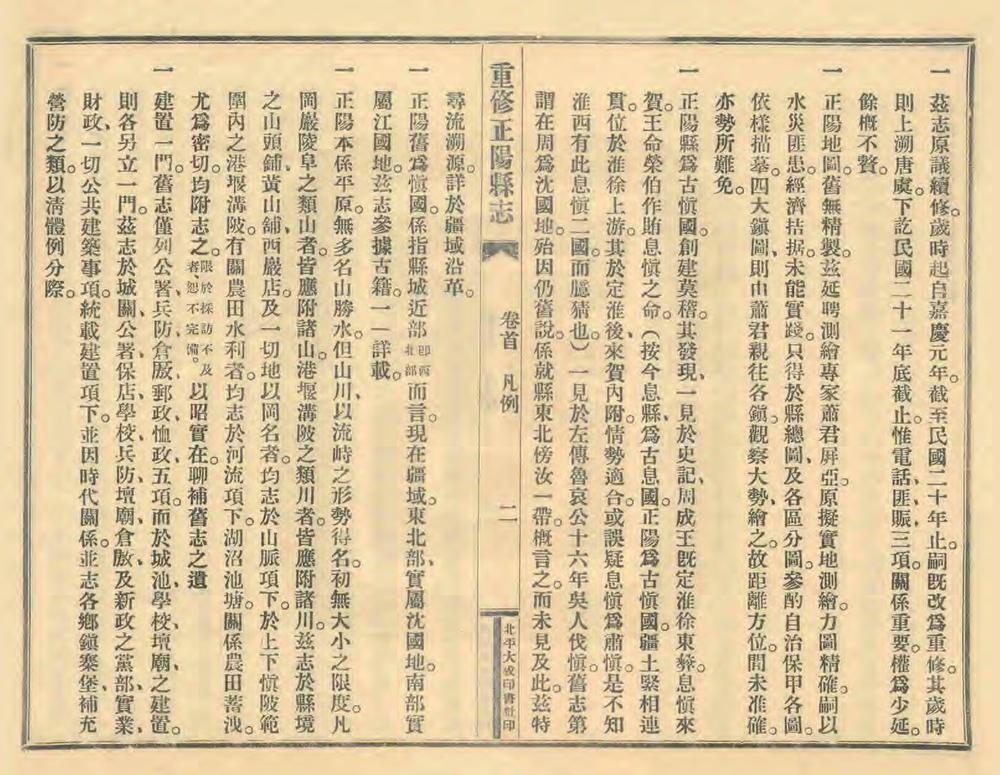 一 茲志原議續修。歲時起自嘉慶元年。截至民國二十年止。嗣既改爲重修。其歲時
則上溯唐虞。下訖民國二十一年底截止。惟電話、匪、賑、三項。關係重要。權爲少延。
餘概不贅。
一 正陽地圖。舊無精製。茲延聘測繪專家蕭君屏亞。原擬實地測繪。力圖精確。嗣以
水災匪患。經濟拮据。未能實踐。只得於縣總圖、及各區分圖。參酌自治保甲各圖。
依樣描摹。四大鎮圖、則由蕭君親往各鎮。觀察大勢、繪之。故距離方位。間未准確。
亦勢所難免。
一 正陽縣爲古愼國。創建莫稽。其發現、一見於史記、周成王既定淮徐東彝。息愼來
賀。王命榮伯作賄息愼之命。（按今息縣、爲古息國。正陽爲古愼國。疆土緊相連
貫。位於淮徐上游。其於定淮後、來賀內附。情勢適合。或誤疑息愼爲肅愼。是不知
淮西有此息愼二國。而臆猜也。）一見於左傳魯哀公十六年吳人伐愼。舊志第
謂在周爲沈國地。殆因仍舊說。係就縣東北傍汝一帶。概言之。而未見及此。茲特
重修正陽縣志
卷首 凡例
二
北平大成印書社印
尋流溯源。詳於疆域沿革。
一 正陽舊爲愼國。係指縣城近部即西北部而言。現在疆域。東北部、實屬沈國地。南部實
屬江國地。茲志參據古籍。一一詳載。
一 正陽本係平原。無多名山勝水。但山川、以流峙之形勢得名。初無大小之限度。凡
岡巖陵阜之類山者。皆應附諸山。港堰溝陂之類川者。皆應附諸川。茲志於縣境
之山頭鋪、黃山舖、西巖店。及一切地以岡名者。均志於山脈項下。於上下愼陂範
圍內之港堰溝陂。有關農田水利者。均志於河流項下。湖沼池塘。關係農田蓄洩。
尤爲密切。均附志之。限於採訪不及者、恕不完備。以昭實在。聊補舊志之遺
一 建置一門。舊志僅列公署、兵防、倉廒、郵政、恤政、五項。而於城池、學校、壇廟、之建置。
則各另立一門。茲志於城關、公署、保店、學校、兵防、壇廟、倉廒、及新政之黨部、實業、
財政、一切公共建築事項。統載建置項下。並因時代關係。並志各鄉鎮寨堡、補充
營防之類。以淸體例分際。